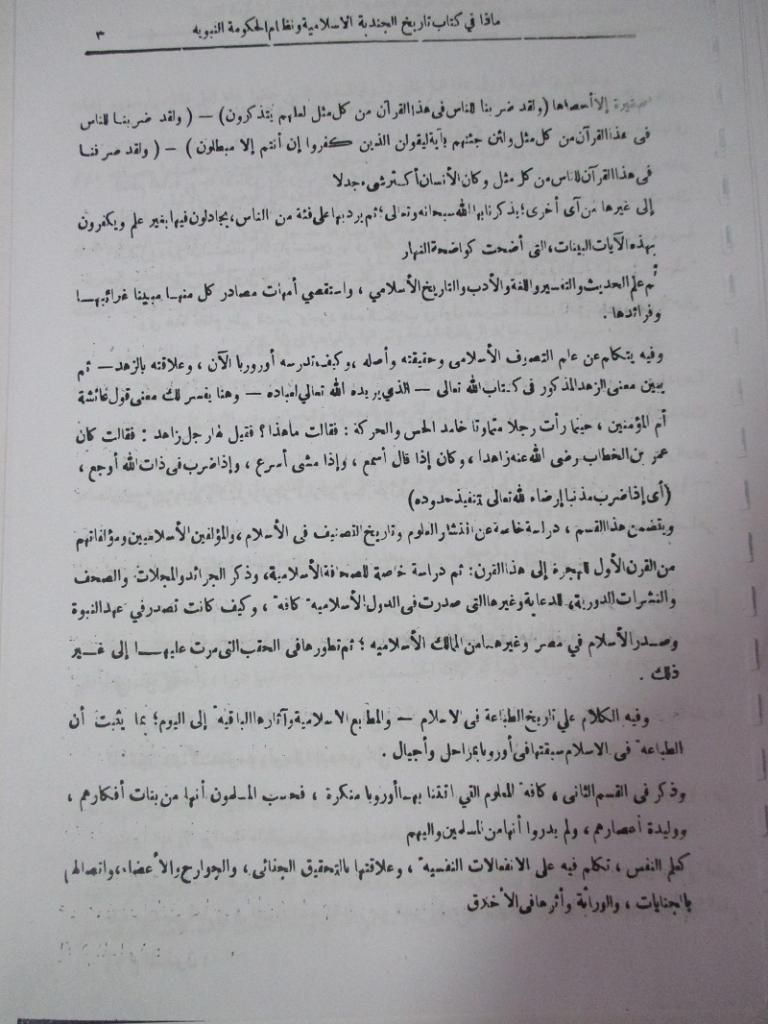 ماذا في كتاب تاريخ الجندية الاسلامية ونظام الحكومة النبويه ٣
صغيرة إلا أحصاها (ولقد ضربنا للناس فى هذا القرآن من كل مثل لعلهم يتذكرون) — (ولقد ضربنا للناس
فى هذا القرآن من كل مثل ولئن جئتهم بآية ليقولن الذين كفروا إن أنتم إلا مبطلون) — (ولقد صرفنا
فى هذا القرآن للناس من كل مثل وكان الأنسان أكثر شىء جدلا
إلى غيرها من آى أخرى؛ يذكرنا بها الله سبحانه وتعالى؛ ثم يرد بها على فئة من الناس، يجادلون فيها بغير علم ويكفرون
بهذه الآيات البينات، التى أضحت كواضحة النهار
ثم علم الحديث والتفسير واللغة والأدب والتاريخ الأسلامي ، واستقصي أمهات مصادر كل منها مبينا غرائبها
وفرائدها .
وفيه يتكلم عن علم التصوف الأسلامى وحقيقته وأصله ،وكيف تدرسه أوروبا الآن ، وعلاقته بالزهد — ثم
يبين معنى الزهد المذكور فى كتاب الله تعالى — الذي يريده الله تعالى لعباده — وهنا يفسر لك معنى قول عائشة
أم المؤمنين ، حينما رأت رجلا متماوتا خامد الحس والحركة : فقالت ماهذا؟ فقيل لها رجل زاهد : فقالت كان
عمر بن الخطاب رضى الله عنه زاهدا ، وكان إذا قال أسمع ، وإذا مشى أسرع ، وإذا ضرب فى ذات الله أوجع ،
(أى إذا ضرب مذنبا إرضاء لله تعالى بتنفيذ حدوده)
ويتضمن هذا القسم ، دراسة خاصة عن انتشار العلوم وتاريخ التصنيف فى الأسلام ، والمؤلفين الأسلاميين ومؤلفاتهم
من القرن الأول للهجرة إلى هذا القرن: ثم دراسة خاصة للصحافة الأسلامية، وذكر الجرائد والمجلات والصحف
والنشرات الدورية، للدعاية وغيرها التى صدرت فى الدول الأسلامية كافة ، وكيف كانت تصدر في عهد النبوة
وصدر الأسلام في مصر وغيرها من الممالك الأسلاميه ؛ ثم تطورها فى الحقب التى مرت عليها إلى غير
ذلك .
وفيه الكلام علي تاريخ الطباعة فى الاسلام — والمطابع الاسلامية وآثارها الباقيه إلى اليوم؛ بما يثبت أن
الطباعه فى الاسلام سبقتها فى أوروبا بمراحل وأجيال .
وذكر فى القسم الثانى ، كافة العلوم التي اتتنا بها أوروبا منكرة ، فحسب المسلمون أنها من بنات أفكارهم ،
ووليدة أعصارهم ، ولم يدروا أنها من المسلمين واليهم
كعلم النفس ، تكلم فيه على الانفعالات النفسية ، وعلاقتها بالتحقيق الجنائى ، والجوارح والأعضاء، واتصالهم
بالجنايات ، والوراثة وأثرها فى الأخلاق